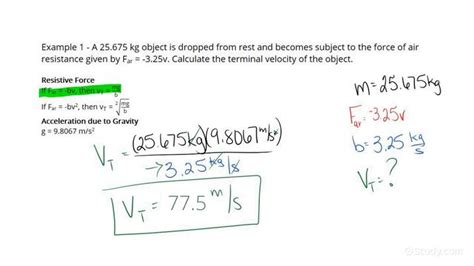 Example 1 - A 25.675 kg object is dropped from rest and becomes subject to the force of air
resistance given by Far = -3.25v. Calculate the terminal velocity of the object.
Resistive Force
If Far = -bv, then vT = mg/b
If Far = -bv², then vT = √mg/b
Acceleration due to Gravity
g = 9.8067 m/s²
m = 25.675kg
Far = -3.25v
b = 3.25 kg/s
VT = ?
VT = (25.675kg)(9.8067 m/s²)
3.25 kg/s
VT = 77.5 m/s
Study.com